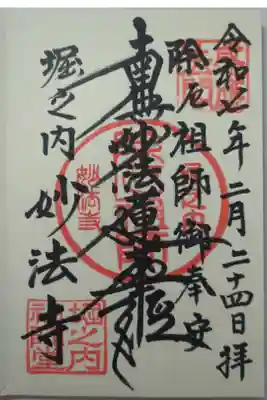 令和七年二月二十四日拝
除厄祖師御奉安
南無妙法蓮華経
堀之内妙法寺
妙法寺
堀之内